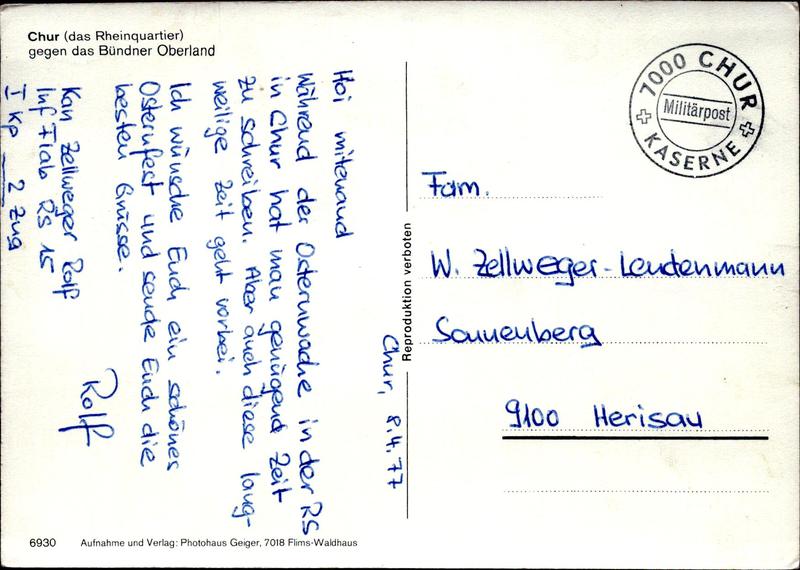 Chur (das Rheinquartier)
gegen das Bündner Oberland
Chur, 8.4.77
Hoi mitenand
Während der Osternwache in der RS
in Chur hat man genügend Zeit
zu schreiben. Aber auch diese lang-
weilige Zeit geht vorbei.
Ich wünsche Euch ein schönes
Osternfest und sende Euch die
besten Grüsse.
Rolf
Kan Zellweger Rolf
Inf Flab RS 15
I Kp 2 Zug
Reproduktion verboten
7000 CHUR
Militärpost
KASERNE
Fam.
W. Zellweger-Leudenmann
Sonnenberg
9100 Herisau
6930 Aufnahme und Verlag: Photohaus Geiger, 7018 Flims-Waldhaus